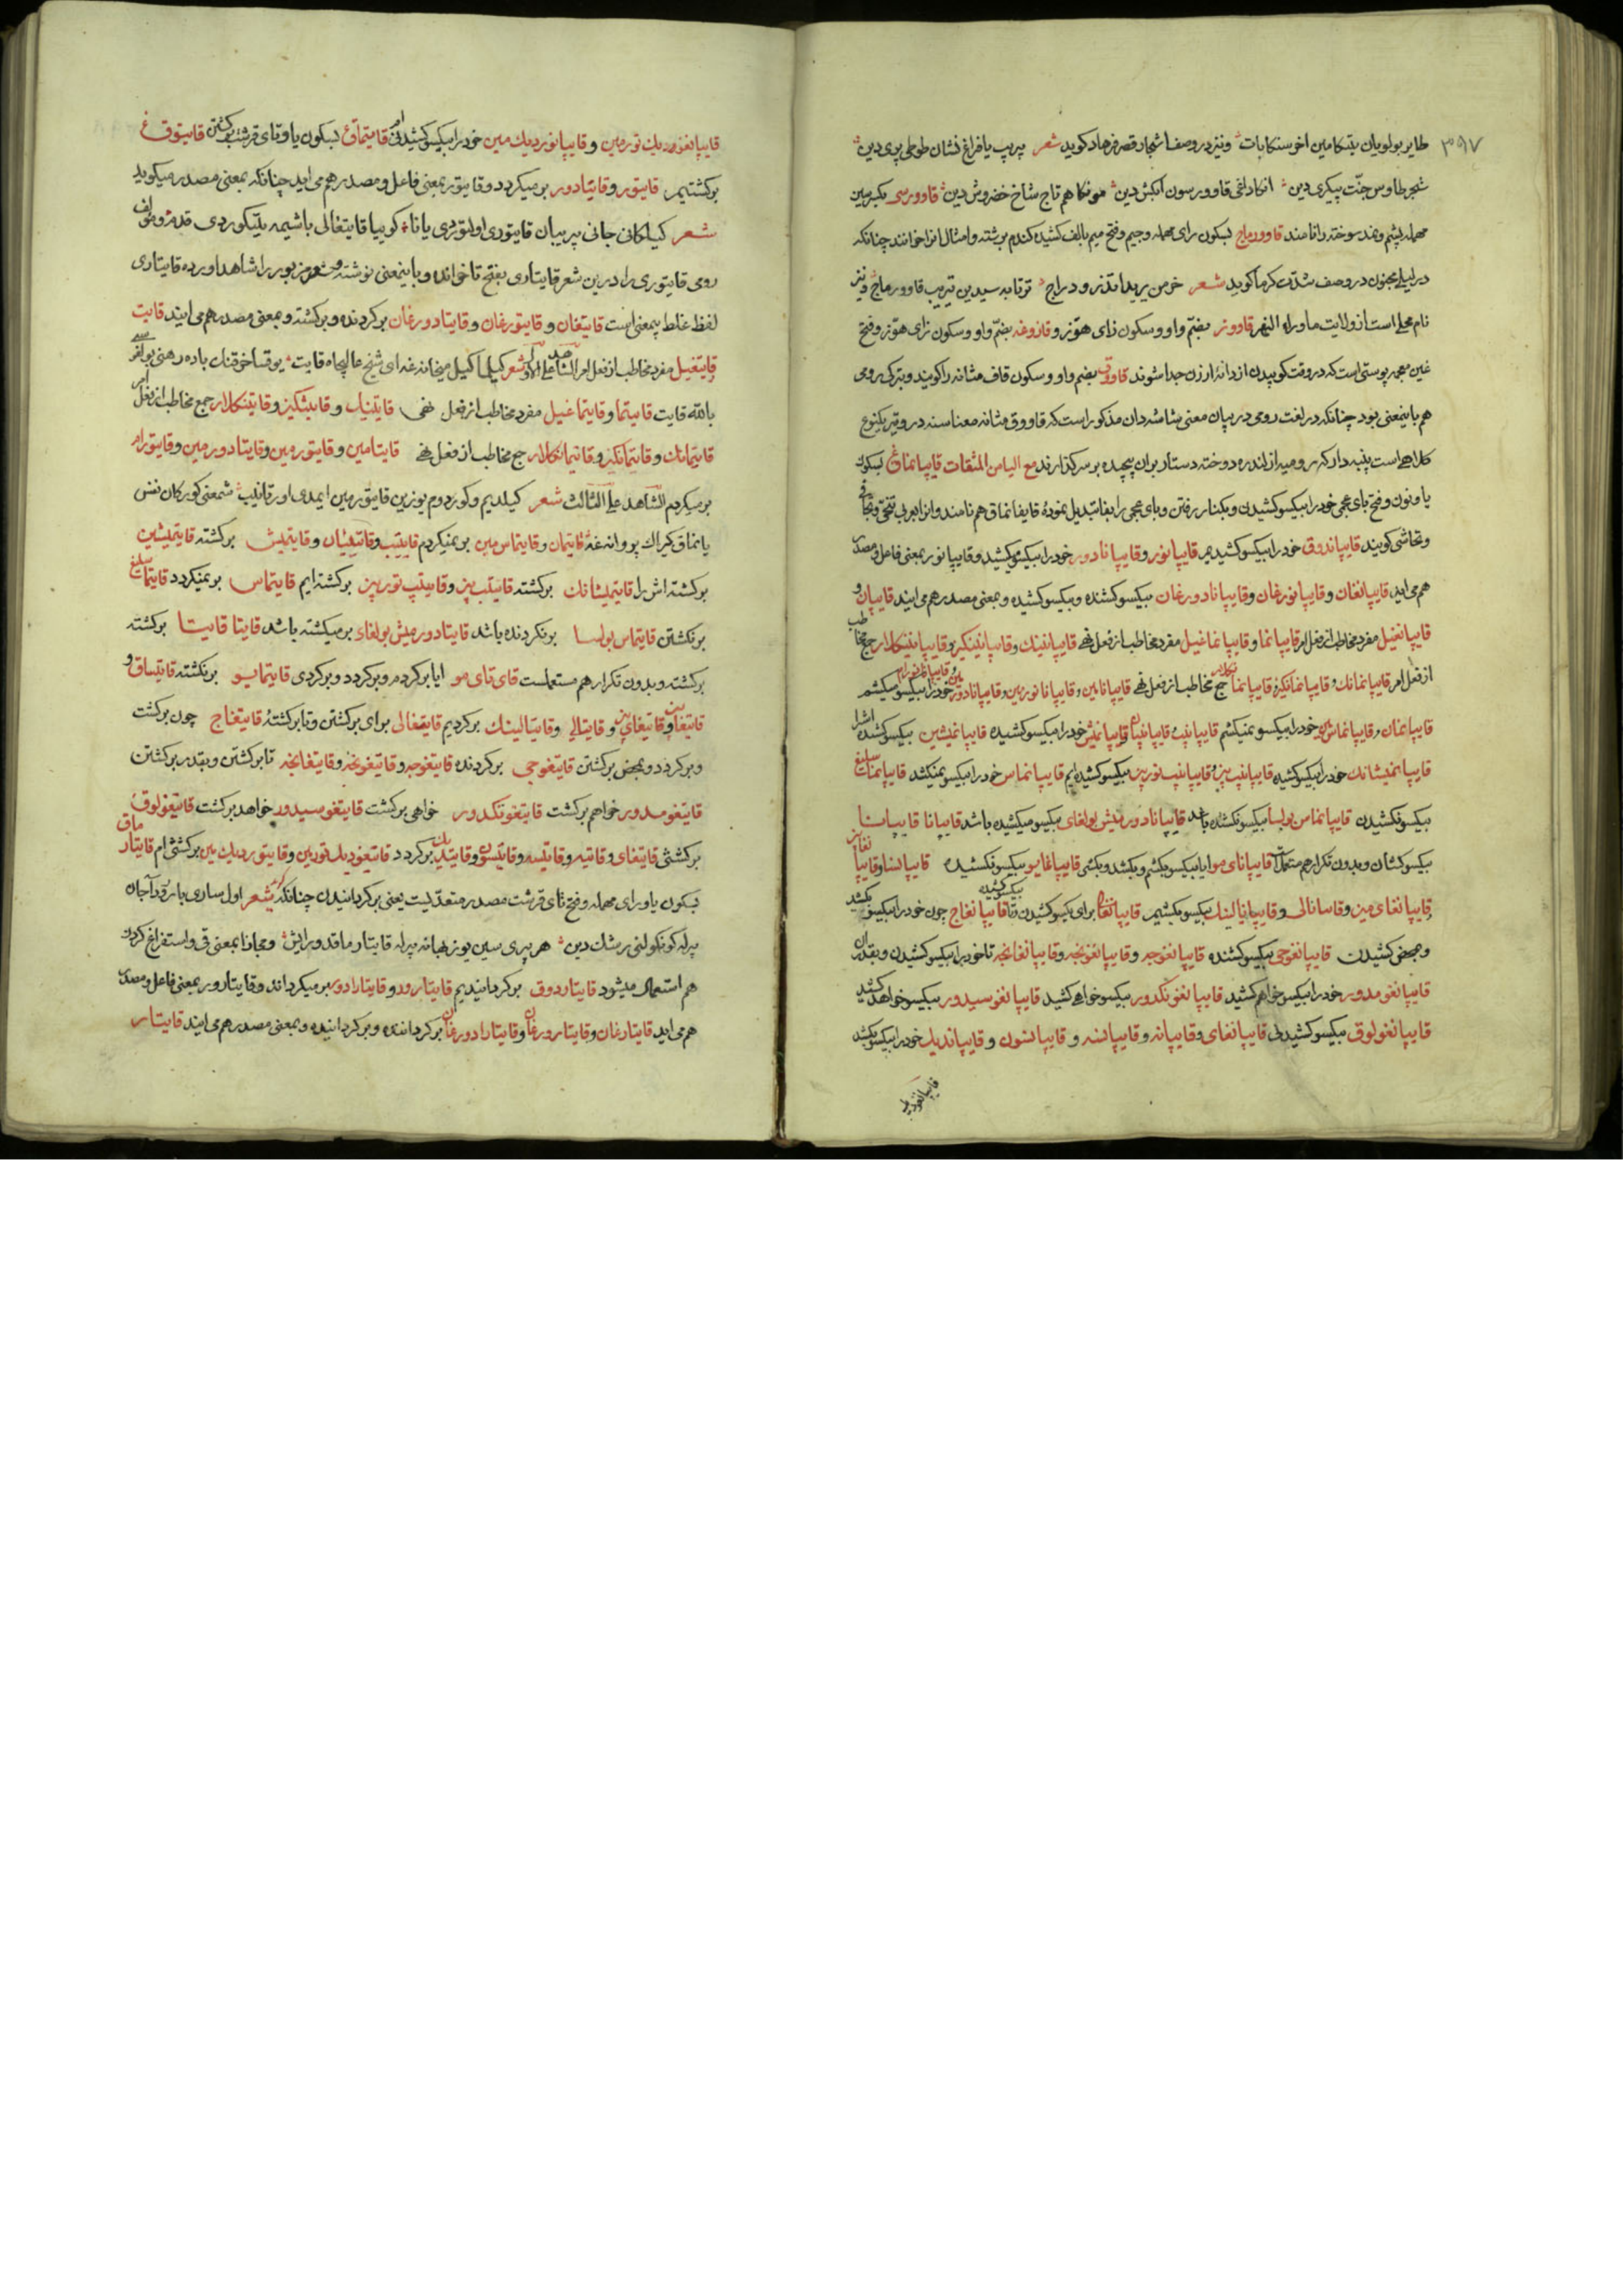 ۳۹۷
طایر بولویان یتیکامین اخر سنکابات ونیز در وصف اشجار قصر فرهاد کوید شعر پریپ یافراغ نشان طوطی پری دین
شجر طاوس جنت پیکری دین انکا داغی قاوورسون ایکش دین مونکا هم تاج شاخ خضروش دین قاوورسی بکسر سین
مهمله پشم و مند سوخته را نامند قاوورماج بسکون رای مهمله و جیم و فتح میم بالف کشیده کندم برشته و امثال انرا خوانند چنانکه
در لیلی مجنون در وصف شدت کرما کوید شعر خرمن
نام محلی است از ولایت ماوراء النهر قاووز بضم واو و سکون زای هوز و قاروغه بضم واو و سکون زای هوز و فتح
غین معجمه پوستی است که در وقت کوبیدن از دانه ارزن جدا شوند قاووق بضم واو و سکون قاف مثانه را کویند و بترکی رومی
هم باینمعنی بود چنانکه در لغت رومی در بیان معنی شاشه دان مذکور است که قاووق مثانه معناسنه در و نیز یکنوع
کلاهی است پنبه دار که رومیه از لندره دوخته دستار بران پیچیده بر سر کذارند مع الیا من المشتقات قایپانماق بسکون
یا و نون و فتح بای عجمی خود را بیکسو کشیدن و بکنار رفتن و بای عجمی را بفا تبدیل نموده قایفانماق هم نامند و انرا بعربی تنحی و تجافی
و تحاشی کویند قایپاندوق خود را بیکسو کشیدیم قایپانور و قایپانادور خود را بیکسو میکشید و قایپانور بمعنی فاعل و مصدر
هم می اید قایپانغان و قایپانورغان و قایپانادورغان بیکسو کشنده و بیکسو کشیده و بمعنی مصدر هم می ایند قایپان و
قایپانغیل مفرد مخاطب از فعل امر قایپانما و قایپانماغیل مفرد مخاطب از فعل نهی قایپانینک و قایپانینکیز و قایپانینکلار جمع مخاطب
از فعل امر قایپانمانک و قایپانمانکیز و قایپانمانکلار جمع مخاطب از فعل نهی قایپانامین و قایپانانورمین و قایپانادورمین خود را بیکسو میکشم
قایپانمان و قایپانماس من خود را بیکسو نمیکشم قایپانیب و قایپانیبان و قایپانمیش خود را بیکسو کشیده قایپانمیشین بیکسو کشیده اش را
قایپانمیشانک خود را بیکسو کشیده قایپانیب بیز و قایپانیب توربیز بیکسو کشیده ایم قایپانماس خود را بیکسو نمیکشد قایپانماسلیغ
بیکسو نکشیدن قایپانماس بولسا بیکسو نکشنده باشد قایپانادورمیش بولغای بیکسو میکشیده باشد قایپانا قایپانا
بیکسو کشان و بدون تکرار هم مستعمل است قایپانای مو ایا بیکسو بکشم و بکشد و بکشی قایپانمایو بیکسو نکشیده
قایپانغای من و قایپانالی و قایپانالینک بیکسو بکشیم قایپانغالی برای بیکسو کشیدن و تا بیکسو کشیده قایپانغاج چون خود را بیکسو کشید
و بمحض کشیدن قایپانغوجی بیکسو کشنده قایپانغوجه و قایپانغونجه و قایپانغانجه تا خود را بیکسو کشیدن و بقدر ان
قایپانغومدور خود را بیکسو خواهم کشید قایپانغونکدور بیکسو خواهی کشید قایپانغوسیدور بیکسو خواهد کشید
قایپانغولوق بیکسو کشیدنی قایپانغای و قایپانه و قایپانسه و قایپانسون و قایپاندیک خود را بیکسو بکشد
قایپانغودیک
قایپانغودیک تورمین و قایپانوردیک مین خود را بیکسو کشیدنی ام قایتماق بسکون یا و تای قرشت برکشتن قایتوق
برکشتیم قایتور و قایتادور برمیکردد و قایتور بمعنی فاعل و مصدر هم می اید چنانکه بمعنی مصدر میکوید
شعر کیلکانی جانی پریبان قایتوری اولتوردی یانا کوییا قایتغالی باشیمه یلتیکوردی قدم و مولف
رومی قایتوری را درین شعر قایتاری بفتح تا خوانده و باینمعنی نوشته و شعر مزبور را شاهد اورده قایتاری
لفظ غلط بیمعنی است قایتغان و قایتورغان و قایتادورغان برکردنده و برکشته و بمعنی مصدر هم می ایند قایت
و قایتغیل مفرد مخاطب از فعل امر الشاهد علی الاول شعر کیل کیل میخانه غه ای شیخ عالیجاه قایت یوقسا خوقنک باده رهنی بولغوسی
بالله قایت قایتما و قایتماغیل مفرد مخاطب از فعل نهی قایتینک و قایتینکیز و قایتینکلار جمع مخاطب از فعل امر
قایتمانک و قایتمانکیز و قایتمانکلار جمع مخاطب از فعل نهی قایتامین و قایتورمین و قایتادورمین و قایتورام
برمیکردم الشاهد علی الثالث شعر کیلدیم و کوردوم یوزین قایتورمین ایمدی اورتانیب شمعنی کورکان نفس
یانماق کیراک پروانه غه قایتمان و قایتماس مین برنمیکردم قایتیب و قایتیبان و قایتمیش برکشته قایتمیشین
برکشته اش را قایتمیشانک برکشته قایتیب بیز و قایتیب توربیز برکشته ایم قایتماس برنمیکردد قایتماسلیغ
برنکشتن قایتماس بولسا برنکردنده باشد قایتادورمیش بولغای برمیکشته باشد قایتا قایتا برکشته
برکشته و بدون تکرار هم مستعملست قایتای مو ایا برکردم و برکردد و برکردی قایتمایو برنکشته قایتساق و
قایتغای بیز و قایتالی و قایتالینک برکردیم قایتغالی برای برکشتن و تا برکشته قایتغاج چون برکشت
و برکردد و بمحض برکشتن قایتغوجی برکردنده قایتغوجه و قایتغونجه و قایتغانجه تا برکشتن و بقدر برکشتن
قایتغومدور خواهم برکشت قایتغونکدور خواهی برکشت قایتغوسیدور خواهد برکشت قایتغولوق
برکشتنی قایتغای و قایته و قایتسه و قایتسون و قایتدیک برکردد قایتغودیک تورمین و قایتوردیک مین برکشتنی ام قایتارماق
بسکون یا و رای مهمله و فتح تای قرشت مصدر متعدیست یعنی برکردانیدن چنانکه کوید شعر اول ساری یا
پرله کونکولنی رشک دین هر پری سین یوز بهانه پرله قایتارماقدورایش و مجازا بمعنی قی و استفراغ کردن
هم استعمال میشود قایتاردوق برکردانیدیم قایتارور و قایتارادور برمیکرداند و قایتارور بمعنی فاعل و مصدر
هم می اید قایتارغان و قایتارورغان و قایتارادورغان برکرداننده و برکردانیده و بمعنی مصدر هم می ایند قایتار